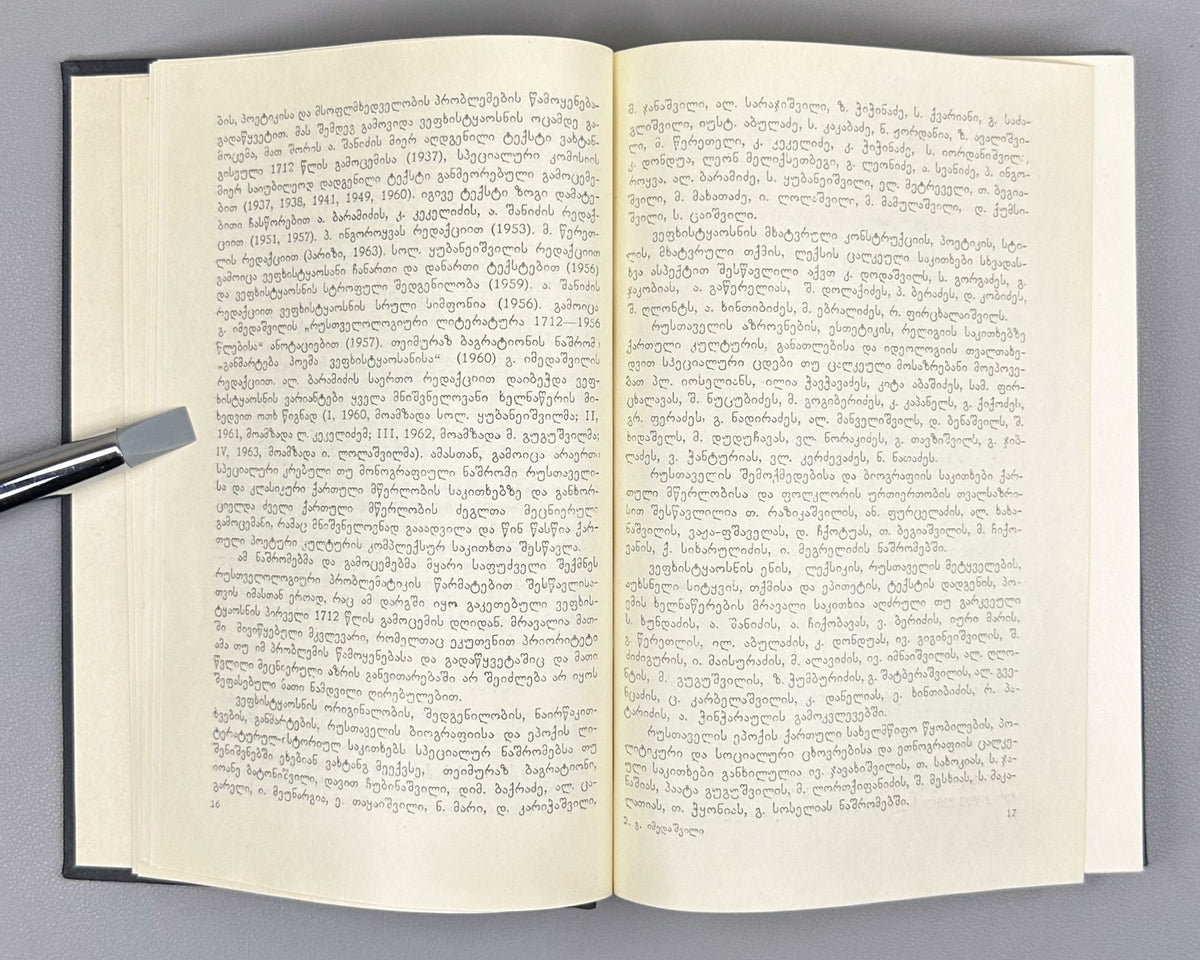 ბის, პოეტიკისა და მსოფლმხედველობის პრობლემების წამოყენება-
გადაწყვეტით. მას შემდეგ გამოვიდა ვეფხისტყაოსნის ოცამდე გა-
მოცემა, მათ შორის ა. შანიძის მიერ აღდგენილი ტექსტი ვახტან-
გისეული 1712 წლის გამოცემისა (1937), სპეციალური კომისიის
მიერ საიუბილეოდ დადგენილი ტექსტი განმეორებული გამოცემე-
ბით (1937, 1938, 1941, 1949, 1960). იგივე ტექსტი ზოგი დამატე-
ბითი ჩასწორებით ა. ბარამიძის, კ. კეკელიძის, ა. შანიძის რედაქ-
ციით (1951, 1957). პ. ინგოროყვას რედაქციით (1953). მ. წერეთ-
ლის რედაქციით (პარიზი, 1963). სოლ. ყუბანეიშვილის რედაქციით
გამოიცა ვეფხისტყაოსანი ჩანართი და დანართი ტექსტებით (1956)
და ვეფხისტყაოსნის სტროფული შედგენილობა (1959). ა. შანიძის
რედაქციით ვეფხისტყაოსნის სრული სიმფონია (1956). გამოიცა
გ. იმედაშვილის „რუსთველოლოგიური ლიტერატურა 1712—1956
წლებისა“ ანოტაციებით (1957). თეიმურაზ ბაგრატიონის ნაშრომი
„განმარტება პოემა ვეფხისტყაოსანისა“ (1960) გ. იმედაშვილის
რედაქციით. ალ. ბარამიძის საერთო რედაქციით დაიბეჭდა ვეფ-
ხისტყაოსნის ვარიანტები ყველა მნიშვნელოვანი ხელნაწერის მი-
ხედვით ოთხ წიგნად (1, 1960, მოამზადა სოლ. ყუბანეიშვილმა; II,
1961, მოამზადა ლ. კეკელიძემ; III, 1962, მოამზადა მ. გუგუშვილმა;
IV, 1963, მოამზადა ი. ლოლაშვილმა). ამასთან, გამოიცა არაერთი
სპეციალური კრებული თუ მონოგრაფიული ნაშრომი რუსთაველი-
სა და კლასიკური ქართული მწერლობის საკითხებზე და განხორ-
ციელდა ძველი ქართული მწერლობის ძეგლთა მეცნიერული
გამოცემანი, რამაც მნიშვნელოვნად გააადვილა და წინ წასწია ქარ-
თული პოეტური კულტურის კომპლექსურ საკითხთა შესწავლა.
ამ ნაშრომებმა და გამოცემებმა მყარი საფუძველი შექმნეს
რუსთველოლოგიური პრობლემატიკის წარმატებით შესწავლისა-
თვის იმასთან ერთად, რაც ამ დარგში იყო გაკეთებული ვეფხის-
ტყაოსნის პირველი 1712 წლის გამოცემის დღიდან. მრავალია მათ-
ში მივიწყებული მკვლევარი, რომელთაც ეკუთვნით პრიორიტეტი
ამა თუ იმ პრობლემის წამოყენებასა და გადაწყვეტაშიც და მათი
წვლილი მეცნიერული აზრის განვითარებაში არ შეიძლება არ იყოს
შეფასებული მათი ნამდვილი ღირებულებით.
ვეფხისტყაოსნის ორიგინალობის, შედგენილობის, ნაირწაკით-
ხვების, განმარტების, რუსთაველის ბიოგრაფიისა და ეპოქის ლი-
ტერატურულ-ისტორიულ საკითხებს სპეციალურ ნაშრომებსა თუ
შენიშვნებში ეხებიან ვახტანგ მეექვსე, თეიმურაზ ბაგრატიონი,
იოანე ბატონიშვილი, დავით ჩუბინაშვილი, დიმ. ბაქრაძე, ალ. ცა-
გარელი, ი. მეუნარგია, ე. თაყაიშვილი, ნ. მარი, დ. კარიჭაშვილი,
16
მ. ჯანაშვილი, ალ. სარაჯიშვილი, ზ. ჭიჭინაძე, ს. ქვარიანი, გ. საძა-
გლიშვილი, იუსტ. აბულაძე, ს. კაკაბაძე, ნ. ჟორდანია, ზ. ავალიშვი-
ლი, მ. წერეთელი, კ. კეკელიძე, კ. ჭიჭინაძე, ს. იორდანიშვილი,
კ. დონდუა, ლეონ მელიქსეთბეგი, გ. ლეონიძე, ა. სვანიძე, პ. ინგო-
როყვა, ალ. ბარამიძე, ს. ყუბანეიშვილი, ელ. მეტრეველი, თ. ბეგია-
შვილი, მ. მახათაძე, ი. ლოლაშვილი, მ. მამულაშვილი, დ. ქუმსი-
შვილი, ს. ცაიშვილი.
ვეფხისტყაოსნის მხატვრული კონსტრუქციის, პოეტიკის, სტი-
ლის, მხატვრული თქმის, ლექსის ცალკეული საკითხები სხვადას-
ხვა ასპექტით შესწავლილი აქვთ კ. დოდაშვილს, ს. გორგაძეს, გ.
ჯაკობიას, ა. გაწერელიას, შ. დოლაქიძეს, პ. ბერაძეს, დ. კობიძეს,
შ. ღლონტს, ა. ხინთიბიძეს, მ. ებრალიძეს, რ. ფირცხალაიშვილს.
რუსთაველის აზროვნების, ესთეტიკის, რელიგიის საკითხებზე
ქართული კულტურის, განათლებისა და იდეოლოგიის თვალთახე-
დვით სპეციალური ცდები თუ ცალკეული მოსაზრებანი მოეპოვე-
ბათ პლ. იოსელიანს, ილია ჭავჭავაძეს, კიტა აბაშიძეს, სამ. ფირ-
ცხალავას, შ. ნუცუბიძეს, მ. გოგიბერიძეს, კ. კაპანელს, გ. ქიქოძეს,
გრ. ფერაძეს, გ. ნადირაძეს, ალ. მანველიშვილს, დ. ბენაშვილს, შ.
ხიდაშელს, მ. დუდუჩავას, ვლ. ნორაკიძეს, გ. თავზიშვილს, გ. ჯიბ-
ლაძეს, ვ. ჭანტურიას, ვლ. კერძევაძეს, ნ. ნათაძეს.
რუსთაველის შემოქმედებისა და ბიოგრაფიის საკითხები ქარ-
თული მწერლობისა და ფოლკლორის ურთიერთობის თვალსაზრი-
სით შესწავლილია თ. რაზიკაშვილის, ან. ფურცელაძის, ალ. ხახა-
ნაშვილის, ვაჟა-ფშაველას, დ. ჩქოტუას, თ. ბეგიაშვილის, მ. ჩიქო-
ვანის, ქ. სიხარულიძის, ი. მეგრელიძის ნაშრომებში.
ვეფხისტყაოსნის ენის, ლექსიკის, რუსთაველის მეტყველების,
აუხსნელი სიტყვის, თქმისა და ეპითეტის, ტექსტის დადგენის, პო-
ემის ხელნაწერების მრავალი საკითხია აღძრული თუ გარკვეული
ს. ხუნდაძის, ა. შანიძის, ა. ჩიქობავას, ვ. ბერიძის, იური მარის,
გ. წერეთლის, ილ. აბულაძის, კ. დონდუას, ივ. გიგინეიშვილის, შ.
ძიძიგურის, ი. მაისურაძის, მ. ალავიძის, ივ. იმნაიშვილის, ალ. ღლო-
ნტის, მ. გუგუშვილის, ზ. ჭუმბურიძის, გ. შატბერაშვილის, ალ. გვე-
ნცაძის, ც. კარბელაშვილის, კ. დანელიას, ე. ხინთიბიძის, რ. პა-
ტარიძის, ა. ჭინჭარაულის გამოკვლევებში.
რუსთაველის ეპოქის ქართული სახელმწიფო წყობილების, პო-
ლიტიკური და სოციალური ცხოვრებისა და ეთნოგრაფიის ცალკე-
ული საკითხები განხილულია ივ. ჯავახიშვილის, თ. სახოკიას, ს. ჯა-
ნაშიას, პაატა გუგუშვილის, მ. ლორთქიფანიძის, შ. მესხიას, ს. მაკა-
ლათიას, თ. ჭყონიას, გ. სოსელიას ნაშრომებში.
2. გ. იმედაშვილი
17